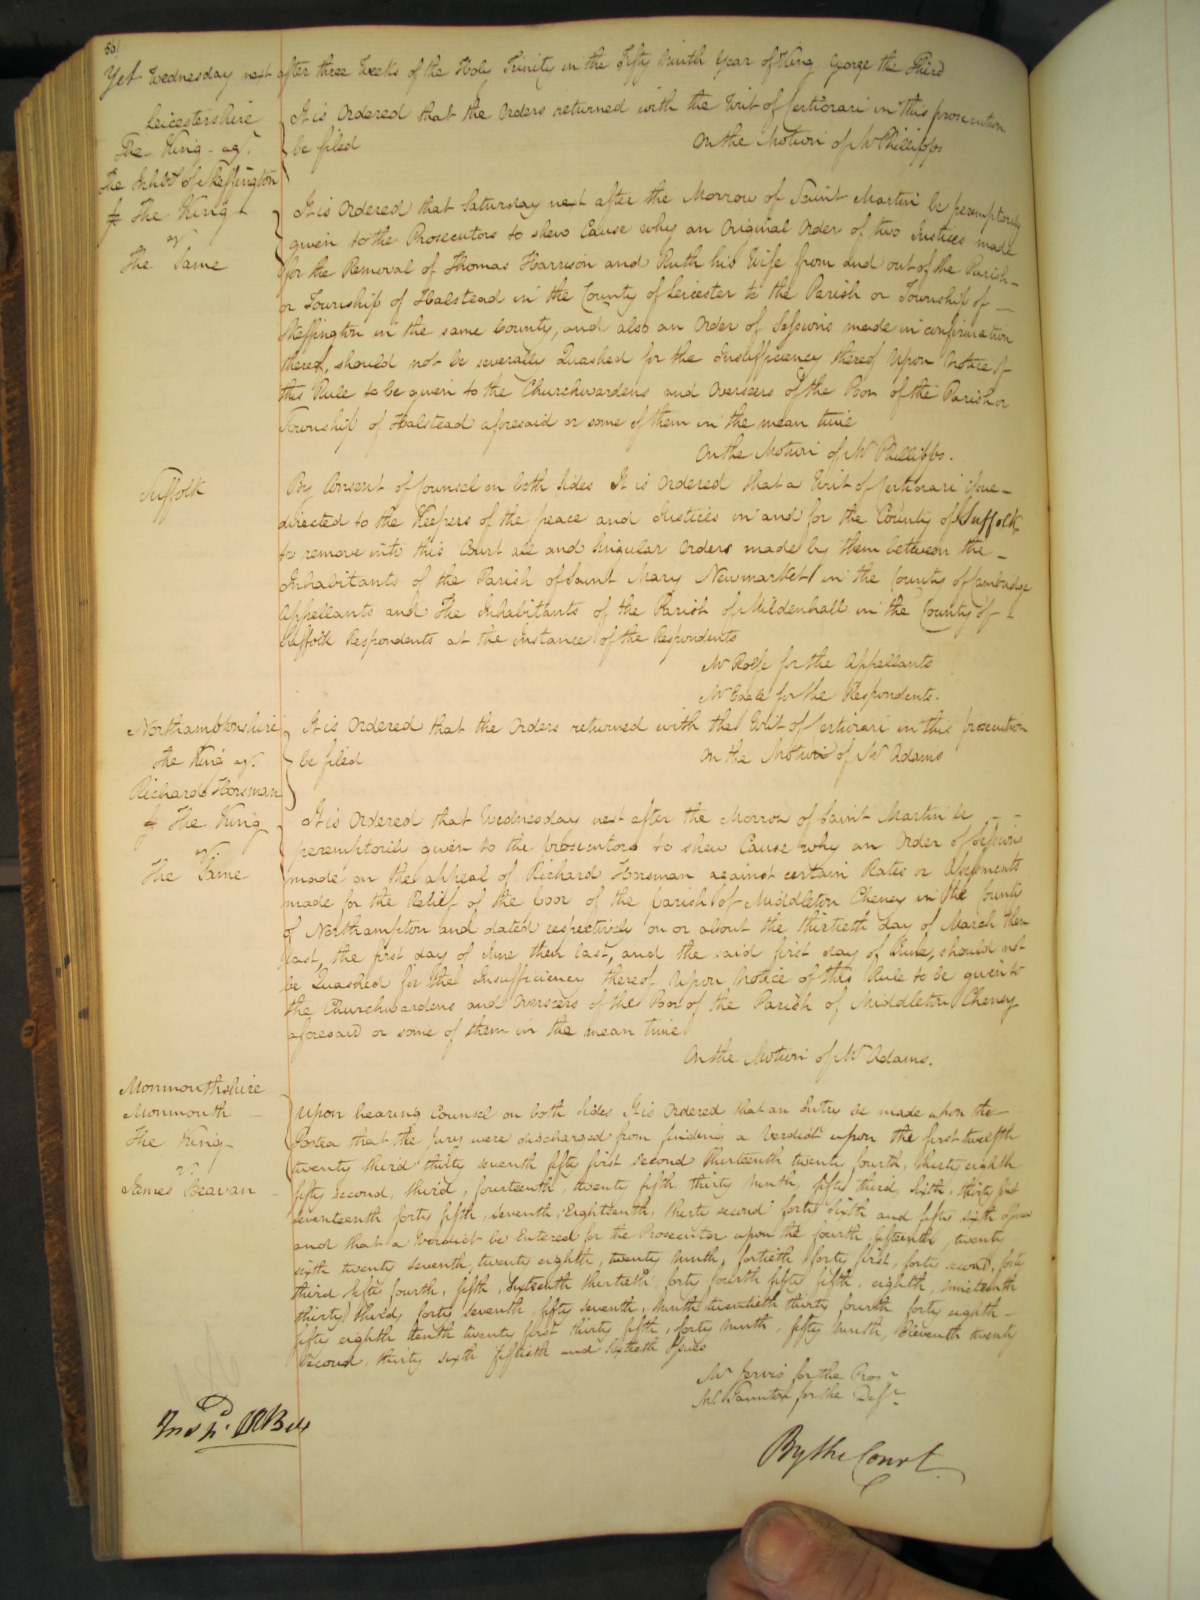 561
Yet Wednesday next after three Weeks of the Holy Trinity in the Fifty Ninth Year of King George the Third
Leicestershire
The King agt.
The Inhabts of Skeffington
It is Ordered that the Orders returned with the Writ of Certiorari in this prosecution
be filed
On the Motion of Mr Phillipps
The King
v
The Same
It is Ordered that Saturday next after the Morrow of Saint Martin be peremptorily
given to the Prosecutors to shew Cause why an Original Order of two Justices made
for the Removal of Thomas Harrison and Ruth his Wife from and out of the Parish
or Township of Halstead in the County of Leicester to the Parish or Township of
Skeffington in the same County, and also an Order of Sessions made in confirmation
thereof, should not be severally Quashed for the Insufficiency thereof Upon Notice of
this Rule to be given to the Churchwardens and Overseers of the Poor of the Parish or
Township of Halstead aforesaid or some of them in the mean time
On the Motion of Mr Phillipps.
Suffolk
By Consent of Counsel on both sides It is Ordered that a Writ of Certiorari issue
directed to the Keepers of the peace and Justices in and for the County of Suffolk
to remove into this Court all and singular Orders made by them between the
Inhabitants of the Parish of Saint Mary Newmarket in the County of Cambridge
Appellants and The Inhabitants of the Parish of Mildenhall in the County of
Suffolk Respondents at the Instance of the Respondents
Mr Rolfe for the Appellants
Mr Eagle for the Respondents.
Northamptonshire
The King agt.
Richard Horsman
It is Ordered that the Orders returned with the Writ of Certiorari in this prosecution
be filed
On the Motion of Mr Adams
The King
v
The Same
It is Ordered that Wednesday next after the Morrow of Saint Martin be
peremptorily given to the prosecutors to shew Cause why an Order of Sessions
made on the appeal of Richard Horsman against certain Rates or Assessments
made for the Relief of the poor of the parish of Middleton Cheney in the County
of Northampton and dated respectively on or about the thirtieth day of March then
last, the first day of June then last, and the said first day of June, should not
be Quashed for the Insufficiency thereof Upon Notice of this Rule to be given to
the Churchwardens and Overseers of the Poor of the Parish of Middleton Cheney
aforesaid or some of them in the mean time
On the Motion of Mr Adams.
Monmouthshire
Monmouth
The King
v
James Beavan
Upon hearing Counsel on both sides It is Ordered that an Entry be made upon the
Postea that the Jury were discharged from finding a Verdict upon the first twelfth
twenty third thirty seventh fifty first second thirteenth twenty fourth, thirty eighth
fifty second, third, fourteenth, twenty fifth, thirty ninth, fifty third, sixth, thirty first
seventeenth forty fifth, seventh, Eighteenth, thirty second forty sixth and fifty sixth Issues
and that a Verdict be Entered for the Prosecutor upon the fourth fifteenth, twenty
sixth twenty seventh, twenty eighth, twenty ninth, fortieth forty first, forty second, forty
third fifty fourth, fifth, sixteenth thirtieth, forty fourth fifty fifth, eighth, nineteenth
thirty third, forty seventh, fifty seventh, ninth twentieth thirty fourth forty eighth
fifty eighth tenth twenty first thirty fifth, forty ninth, fifty ninth, eleventh twenty
second, thirty sixth fiftieth and sixtieth Issues
Mr Jervis for the Prosr
Mr Taunton for the Deft
By the Court